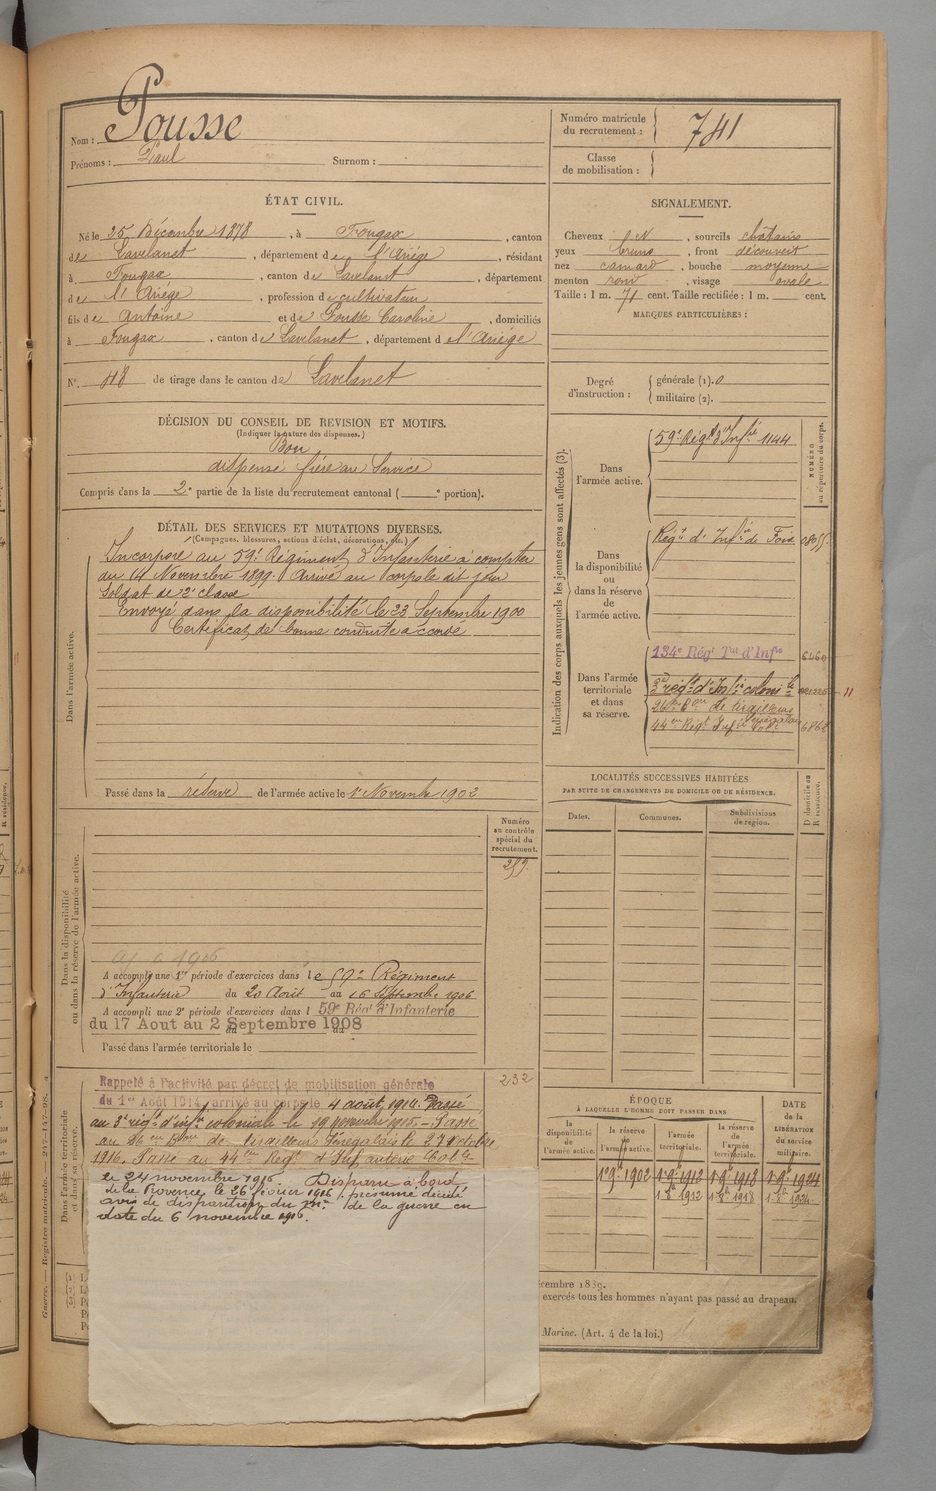 Nom : Pousse
Prénoms : Paul Surnom :
Numéro matricule du recrutement : 741
Classe de mobilisation :
ÉTAT CIVIL.
Né le 25 Décembre 1878, à Fougax, canton
de Lavelanet, département de l'Ariège, résidant
à Fougax, canton de Lavelanet, département
de l'Ariège, profession de cultivateur
fils de Antoine et de Pousse Caroline, domiciliés
à Fougax, canton de Lavelanet, département de l'Ariège
N° 48 de tirage dans le canton de Lavelanet
SIGNALEMENT.
Cheveux ch N, sourcils châtains
yeux bruns, front découvert
nez camard, bouche moyenne
menton rond, visage ovale
Taille : 1 m. 71 cent. Taille rectifiée : 1 m. cent.
MARQUES PARTICULIÈRES :
Degré d'instruction : générale (1). 0
militaire (2).
DÉCISION DU CONSEIL DE REVISION ET MOTIFS.
(Indiquer la nature des dispenses.)
Bon
dispensé frère au Service
Compris dans la 2e partie de la liste du recrutement cantonal ( e portion).
DÉTAIL DES SERVICES ET MUTATIONS DIVERSES.
(Campagnes, blessures, actions d'éclat, décorations, etc.)
Dans l'armée active.
Incorporé au 59e Régiment d'Infanterie à compter
du 14 Novembre 1899. Arrivé au Corps le dit jour
Soldat de 2e classe
Envoyé dans la disponibilité le 23 Septembre 1900
Certificat de bonne conduite accordé
Passé dans la réserve de l'armée active le 1er Novembre 1902
Indication des corps auxquels les jeunes gens sont affectés (3).
NUMÉRO au répertoire du corps.
Dans l'armée active.
59e Régt d'Infie 1144
Dans la disponibilité ou dans la réserve de l'armée active.
Régt d'Infie de Foix
Dans l'armée territoriale et dans sa réserve.
134e Régt Tal d'Infie 6460
2e régt d'Infie coloniale
26me Bon de tirailleurs
44me Régt Infie Col. 6868
11
LOCALITÉS SUCCESSIVES HABITÉES
PAR SUITE DE CHANGEMENTS DE DOMICILE OU DE RÉSIDENCE.
Dates. Communes. Subdivisions de région.
D domicile ou R résidence.
Dans la disponibilité ou dans la réserve de l'armée active.
Numéro au contrôle spécial du recrutement.
A accompli une 1re période d'exercices dans le 59e Régiment
d'Infanterie du 20 Août au 16 Septembre 1906
A accompli une 2e période d'exercices dans l 59e Régt d'Infanterie
du 17 Aout au 2 Septembre 1908
Passé dans l'armée territoriale le
Dans l'armée territoriale et dans sa réserve.
232
Rappelé à l'activité par décret de mobilisation générale
du 1er Août 1914, arrivé au corps le 4 août 1914. Passé
au 3e régt d'infie coloniale le 19 novembre 1915. – Passé
au 36me Bon de tirailleurs Sénégalais le 27 octobre
1916. Passé au 44me Régt d'Infanterie Colle
le 24 novembre 1916 Disparu à bord
de la Provence le 26 février 1916, présumé décédé
avis de disparition du Mre de la guerre en
date du 6 novembre 1916.
ÉPOQUE
À LAQUELLE L'HOMME DOIT PASSER DANS
la disponibilité de l'armée active.
la réserve de l'armée active.
l'armée territoriale.
la réserve de l'armée territoriale.
DATE de la LIBÉRATION du service militaire.
1er 9bre 1902 1er 9bre 1912 1er 9bre 1918 1er 9bre 1924
1er 8bre 1912 1er 8bre 1918 1er 8bre 1924
Guerre. — Registre matricule. — 247-147-98.
écembre 1889.
exercés tous les hommes n'ayant pas passé au drapeau.
Marine. (Art. 4 de la loi.)